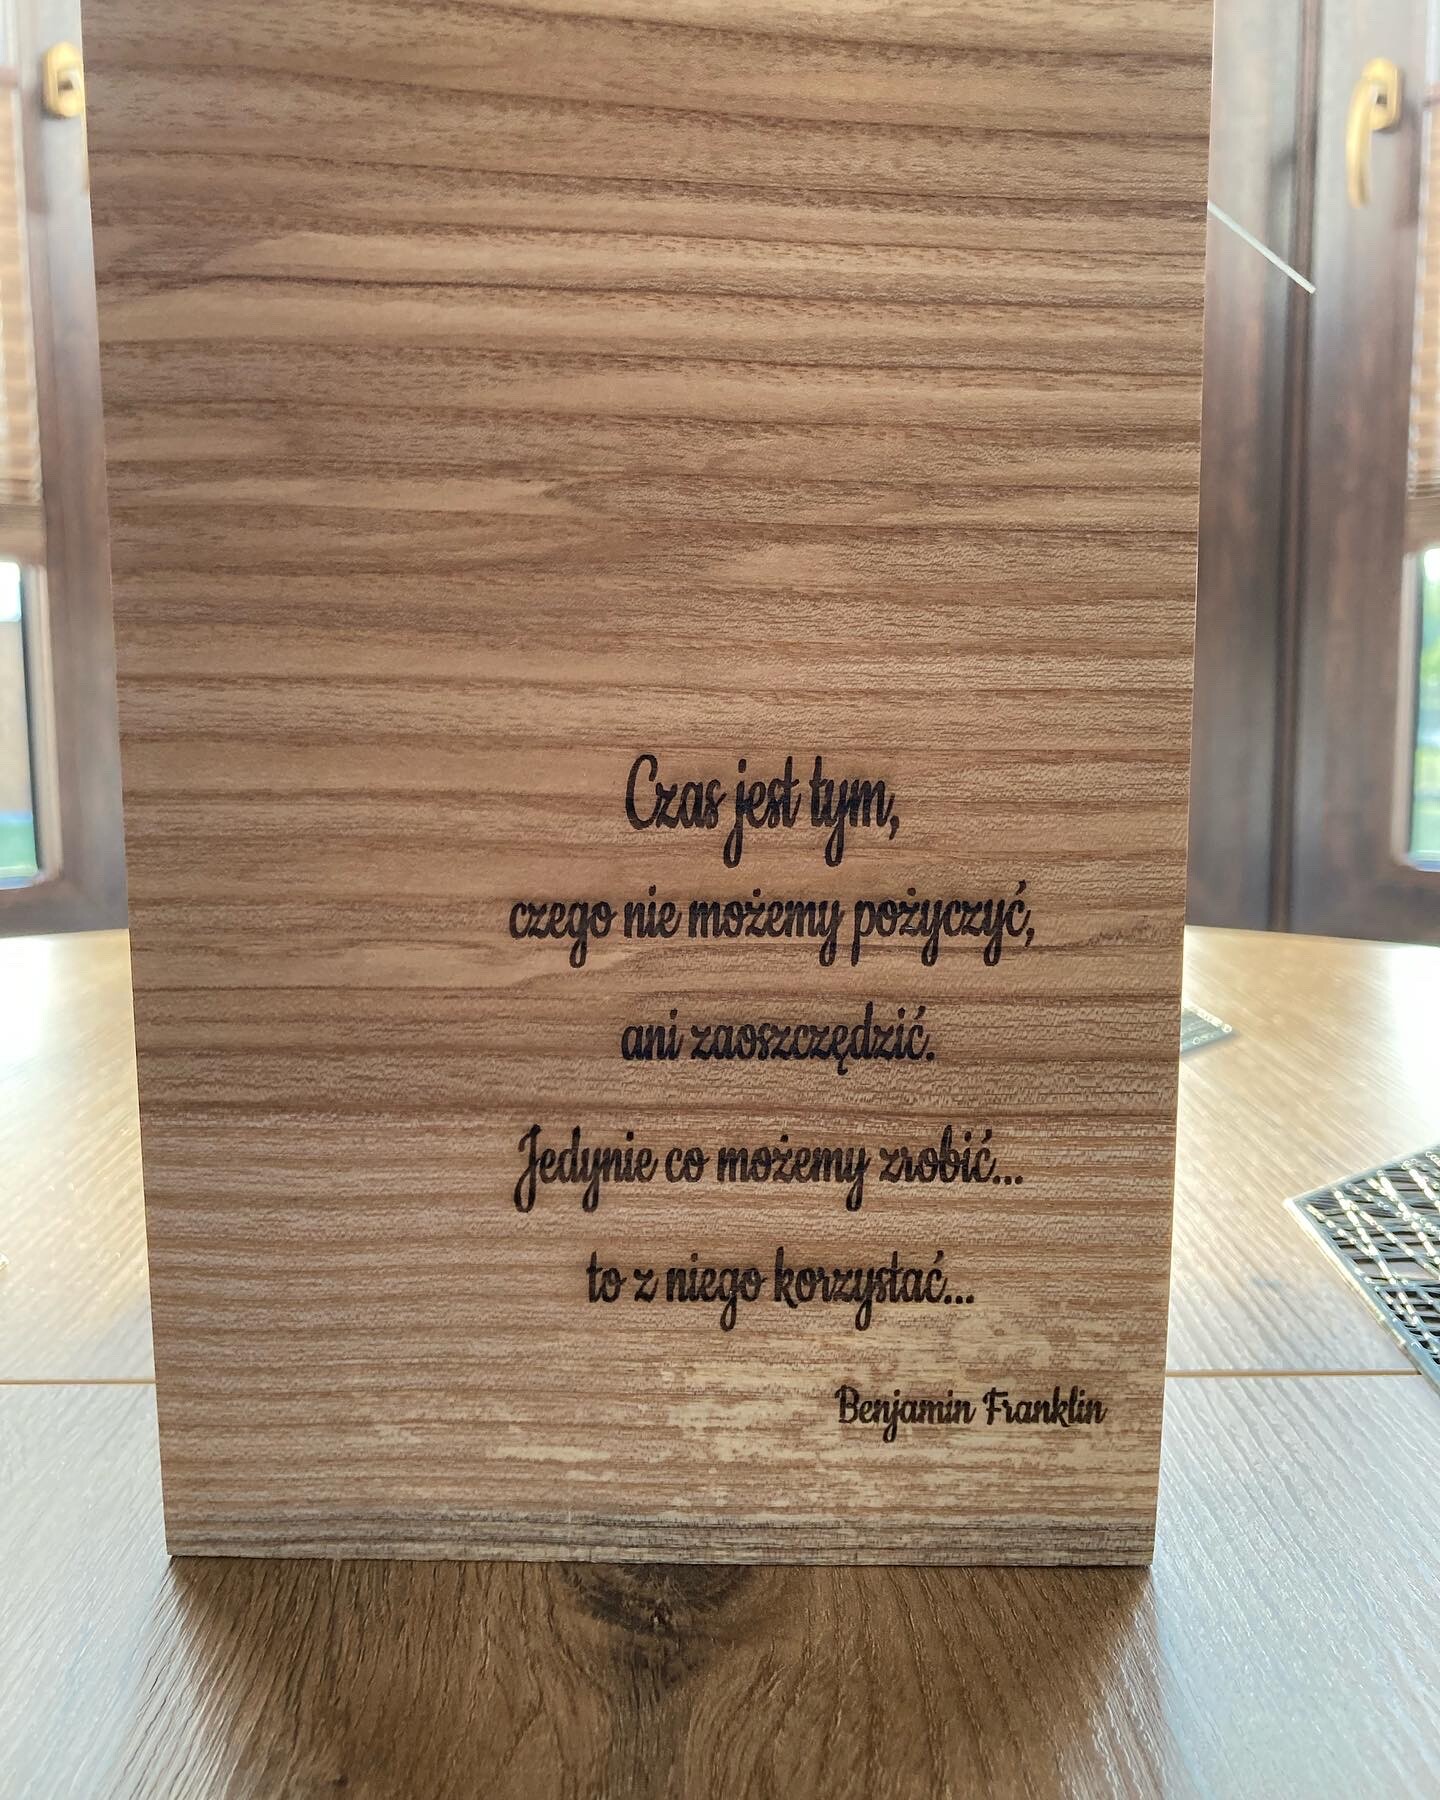 Czas jest tym,
czego nie możemy pożyczyć,
ani zaoszczędzić.
Jedynie co możemy zrobić...
to z niego korzystać...
Benjamin Franklin